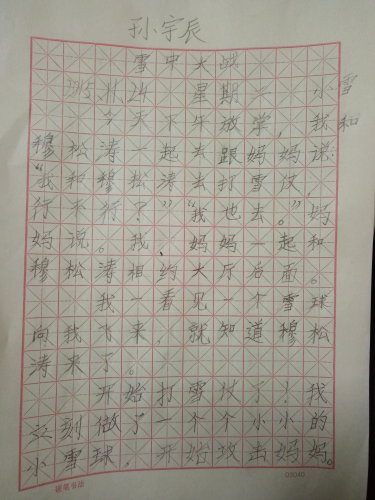 孙宇辰
雪中大战
2015.11.24 星期二 小雪
今天下午放学，我和
穆松涛一起去跟妈妈说：
“我和穆松涛去打雪仗，
行不行？”“我也去。”妈
妈说。我、妈妈一起和
穆松涛相约大厅后面。
我一看见一个雪球
向我飞来，就知道穆松
涛来了。
开始打雪仗了！我
立刻做了一个个小小的
小雪球，开始攻击妈妈。
硬笔书法